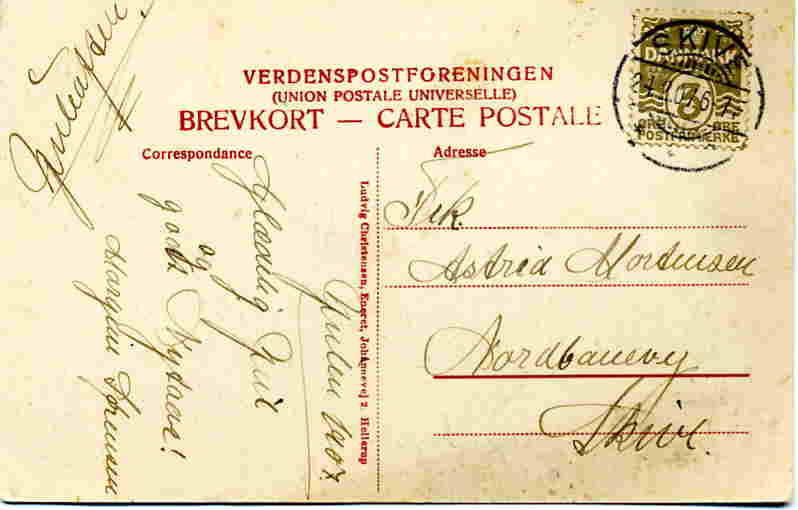 VERDENSPOSTFORENINGEN
(UNION POSTALE UNIVERSELLE)
BREVKORT — CARTE POSTALE
Correspondance
Adresse
DANMARK
3
ØRE ØRE
POSTFRIMÆRKE
SKIVE
Julen 1907
Glædelig Jul
og
godt Nytaar!
Ludvig Christensen, Eneret, Johannevej 2. Hellerup
Frk
Astrid Mortensen
Nordbanevej
Skive.